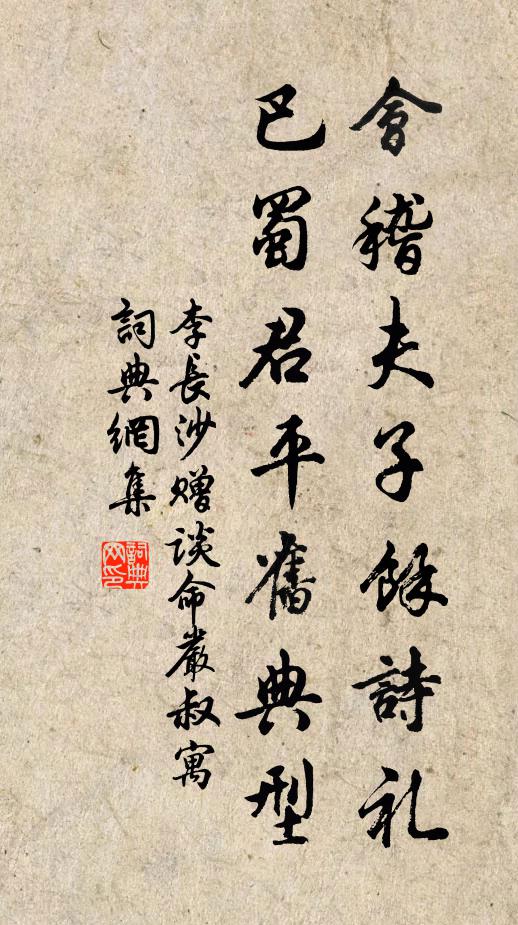 會稽夫子餘詩礼
巴蜀君平舊典型
李長沙贈談命嚴叔寓
詞典網集
詞典網印